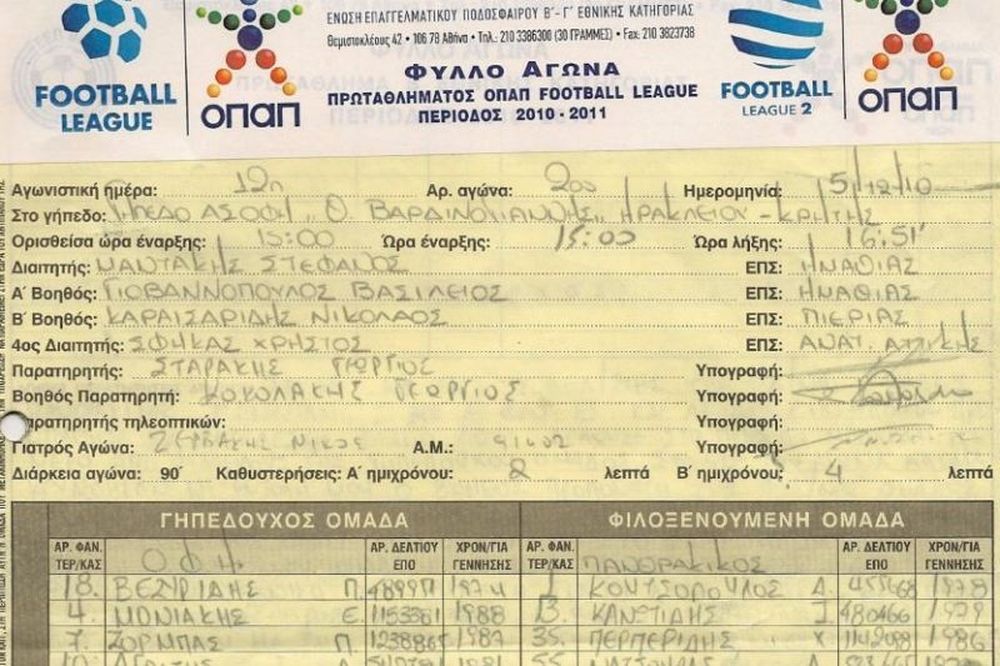 ΕΝΩΣΗ ΕΠΑΓΓΕΛΜΑΤΙΚΟΥ ΠΟΔΟΣΦΑΙΡΟΥ Β΄- Γ΄ ΕΘΝΙΚΗΣ ΚΑΤΗΓΟΡΙΑΣ
Θεμιστοκλέους 42 • 106 78 Αθήνα • Τηλ.: 210 3386300 (30 ΓΡΑΜΜΕΣ) • Fax: 210 3823738
ΦΥΛΛΟ ΑΓΩΝΑ
ΠΡΩΤΑΘΛΗΜΑΤΟΣ ΟΠΑΠ FOOTBALL LEAGUE
ΠΕΡΙΟΔΟΣ 2010 - 2011
FOOTBALL
LEAGUE
ΟΠΑΠ
FOOTBALL
LEAGUE 2
ΟΠΑΠ
Αγωνιστική ημέρα: 12η Αρ. αγώνα: Ημερομηνία: 5/12/10
Στο γήπεδο: ΓΗΠΕΔΟ ΑΣΟΦΗ "Θ. ΒΑΡΔΙΝΟΓΙΑΝΝΗΣ" ΗΡΑΚΛΕΙΟΥ - ΚΡΗΤΗΣ
Ορισθείσα ώρα έναρξης: 15:00 Ώρα έναρξης: 15:00 Ώρα λήξης: 16:51'
Διαιτητής: ΜΑΝΤΑΚΗΣ ΣΤΕΦΑΝΟΣ ΕΠΣ: ΗΜΑΘΙΑΣ
Α΄ Βοηθός: ΓΙΟΒΑΝΝΟΠΟΥΛΟΣ ΒΑΣΙΛΕΙΟΣ ΕΠΣ: ΗΜΑΘΙΑΣ
Β΄ Βοηθός: ΚΑΡΑΙΣΑΡΙΔΗΣ ΝΙΚΟΛΑΟΣ ΕΠΣ: ΠΙΕΡΙΑΣ
4ος Διαιτητής: ΣΦΗΚΑΣ ΧΡΗΣΤΟΣ ΕΠΣ: ΑΝΑΤ. ΑΤΤΙΚΗΣ
Παρατηρητής: ΣΤΑΡΑΚΗΣ ΓΕΩΡΓΙΟΣ Υπογραφή:
Βοηθός Παρατηρητή: ΚΟΚΟΛΑΚΗΣ ΓΕΩΡΓΙΟΣ Υπογραφή:
Παρατηρητής τηλεοπτικών: Υπογραφή:
Γιατρός Αγώνα: ΖΕΡΒΑΚΗΣ ΝΙΚΟΣ Α.Μ.: Υπογραφή:
Διάρκεια αγώνα: 90΄ Καθυστερήσεις: Α΄ ημιχρόνου: 2 λεπτά Β΄ ημιχρόνου: 4 λεπτά
ΓΗΠΕΔΟΥΧΟΣ ΟΜΑΔΑ ΦΙΛΟΞΕΝΟΥΜΕΝΗ ΟΜΑΔΑ
ΑΡ. ΦΑΝ. ΤΕΡ/ΚΑΣ Ο.Φ.Η ΑΡ. ΔΕΛΤΙΟΥ ΕΠΟ ΧΡΟΝ/ΓΙΑ ΓΕΝΝΗΣΗΣ ΑΡ. ΦΑΝ. ΤΕΡ/ΚΑΣ ΠΑΝΘΡΑΚΙΚΟΣ ΑΡ. ΔΕΛΤΙΟΥ ΕΠΟ ΧΡΟΝ/ΓΙΑ ΓΕΝΝΗΣΗΣ
18. ΒΕΖΥΡΙΔΗΣ Π. 1974 1 ΚΟΝΤΣΟΠΟΥΛΟΣ Δ. 1978
4. ΜΟΝΙΑΚΗΣ Ε. 1153361 1988 13. ΚΑΝΩΤΙΔΗΣ Ι 480466 1979
7. ΖΟΡΜΠΑΣ Π 1238865 1987 35. ΠΕΡΠΕΡΙΔΗΣ Χ 1986